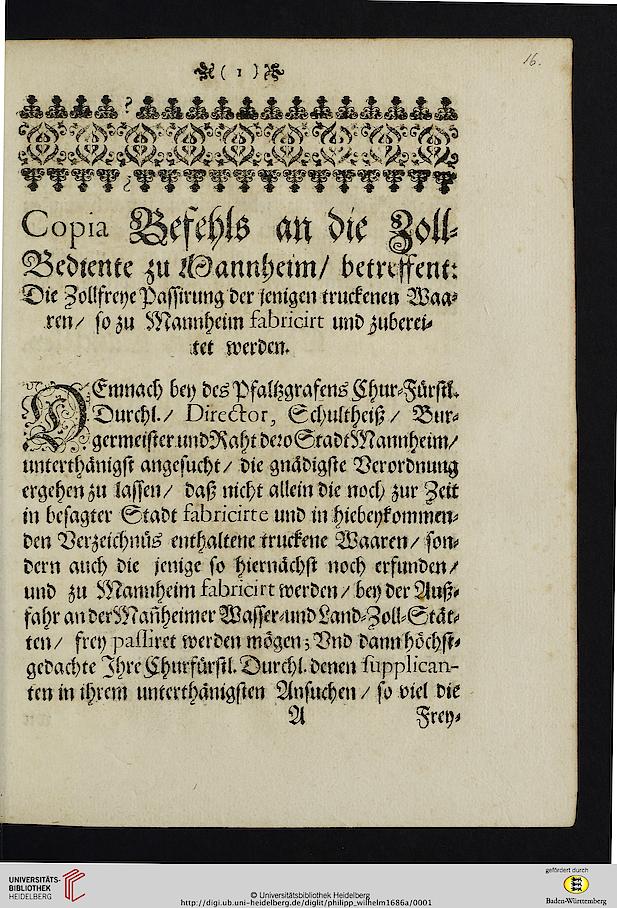 ( 1 )
16.
Copia Befehls an die Zoll-
Bediente zu Mannheim/ betreffent:
Die Zollfreye Passirung der jenigen truckenen Waa-
ren/ so zu Mannheim fabricirt und zuberei-
tet werden.
DEmnach bey des Pfaltzgrafens Chur-Fürstl.
Durchl./ Director, Schultheiß/ Bur-
germeister und Raht dero Stadt Mannheim/
unterthänigst angesucht/ die gnädigste Verordnung
ergehen zu lassen/ daß nicht allein die noch zur Zeit
in besagter Stadt fabricirte und in hiebeykommen-
den Verzeichnüs enthaltene truckene Waaren/ son-
dern auch die jenige so hiernächst noch erfunden/
und zu Mannheim fabricirt werden/ bey der Auß-
fahr an der Mañheimer Wasser-und Land-Zoll-Stät-
ten/ frey passiret werden mögen; Vnd dann höchst-
gedachte Ihre Churfürstl. Durchl. denen supplican-
ten in ihrem unterthänigsten Ansuchen/ so viel die
A Frey-
UNIVERSITÄTS-
BIBLIOTHEK
HEIDELBERG
© Universitätsbibliothek Heidelberg
http://digi.ub.uni-heidelberg.de/diglit/philipp_wilhelm1686a/0001
gefördert durch
Baden-Württemberg